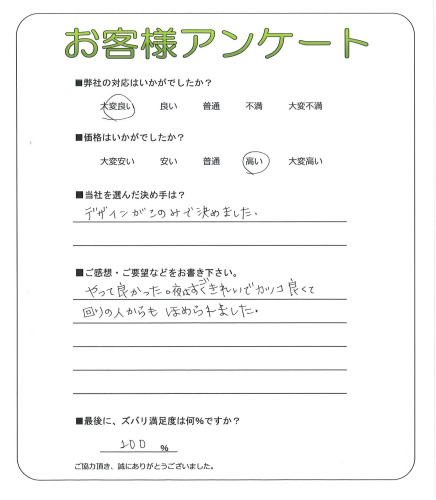 お客様アンケート
■弊社の対応はいかがでしたか?
大変良い 良い 普通 不満 大変不満
■価格はいかがでしたか?
大変安い 安い 普通 高い 大変高い
■当社を選んだ決め手は?
デザインがこのみで決めました。
■ご感想・ご要望などをお書き下さい。
やって良かった。夜はすごくきれいでカッコ良くて
回りの人からも ほめられました。
■最後に、ズバリ満足度は何%ですか?
100 %
ご協力頂き、誠にありがとうございました。